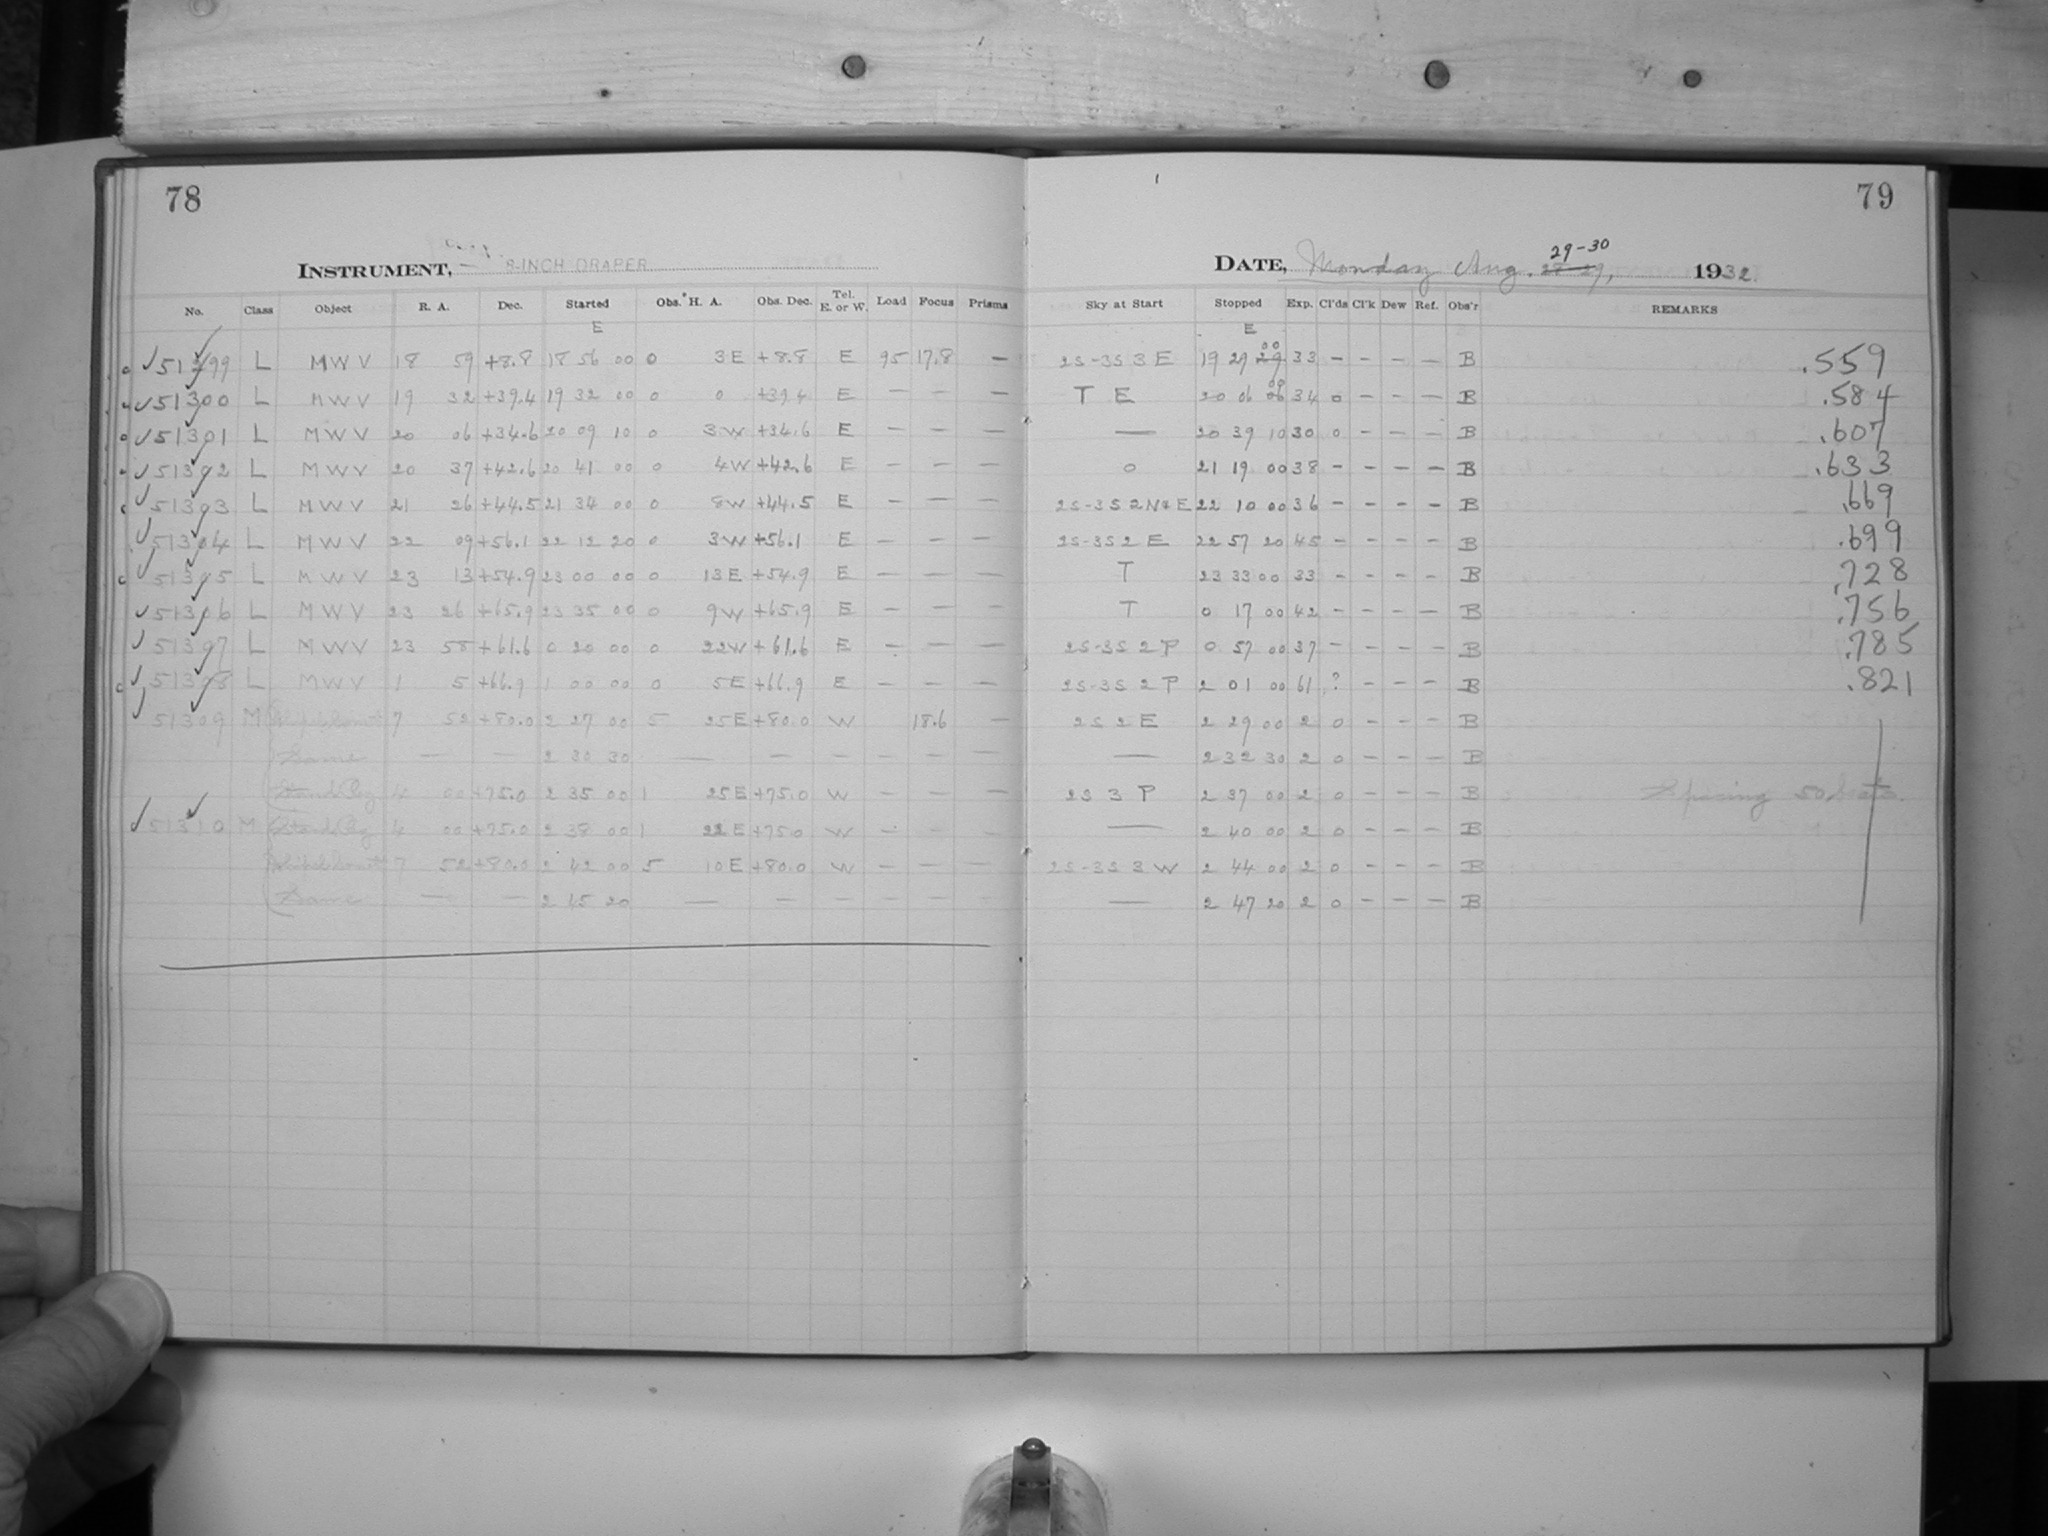 78
INSTRUMENT, 8-INCH DRAPER
No. Class Object R. A. Dec. Started Obs. H. A. Obs. Dec. Tel. E. or W. Load Focus Prisms
E
51299 L MWV 18 59 +8.8 18 56 00 0 3E +8.8 E 95 17.8 —
51300 L MWV 19 32 +39.4 19 32 00 0 0 +39.4 E — — —
51301 L MWV 20 06 +34.6 20 09 10 0 3W +34.6 E — — —
51302 L MWV 20 37 +42.6 20 41 00 0 4W +42.6 E — — —
51303 L MWV 21 26 +44.5 21 34 00 0 8W +44.5 E — — —
51304 L MWV 22 09 +56.1 22 12 20 0 3W +56.1 E — — —
51305 L MWV 23 13 +54.9 23 00 00 0 13E +54.9 E — — —
51306 L MWV 23 26 +65.9 23 35 00 0 9W +65.9 E — — —
51307 L MWV 23 58 +61.6 0 20 00 0 22W +61.6 E — — —
51308 L MWV 1 5 +66.9 1 00 00 0 5E +66.9 E — — —
51309 M 7 52 +80.0 2 27 00 5 25E +80.0 W 18.6 —
Same — — 2 30 30 — — — — — —
Stand Reg 4 00 +75.0 2 35 00 1 25E +75.0 W — — —
51310 M Stand Reg 4 00 +75.0 2 38 00 1 22E +75.0 W — — —
7 52 +80.0 2 42 00 5 10E +80.0 W — — —
Same — — 2 45 20 — — — — — —
79
DATE, Monday Aug. 28-29, 29-30 1932.
Sky at Start Stopped Exp. Cl'ds Cl'k Dew Ref. Obs'r REMARKS
E
2S-3S 3 E 19 29 29 00 33 — — — — B .559
T E 20 06 06 00 34 0 — — — B .584
— 20 39 10 30 0 — — — B .607
0 21 19 00 38 — — — — B .633
2S-3S 2N&E 22 10 00 36 — — — — B .669
2S-3S 2 E 22 57 20 45 — — — — B .699
T 23 33 00 33 — — — — B .728
T 0 17 00 42 — — — — B .756
2S-3S 2 P 0 57 00 37 — — — — B .785
2S-3S 2 P 2 01 00 61 ? — — — B .821
2S 2 E 2 29 00 2 0 — — — B
— 2 32 30 2 0 — — — B
2S 3 P 2 37 00 2 0 — — — B Spacing 50
— 2 40 00 2 0 — — — B
2S-3S 3 W 2 44 00 2 0 — — — B
— 2 47 20 2 0 — — — B